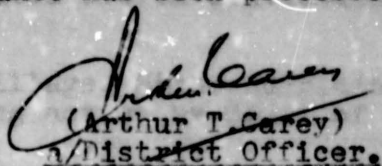 Arthur Carey
(Arthur T.Carey)
a/District Officer.